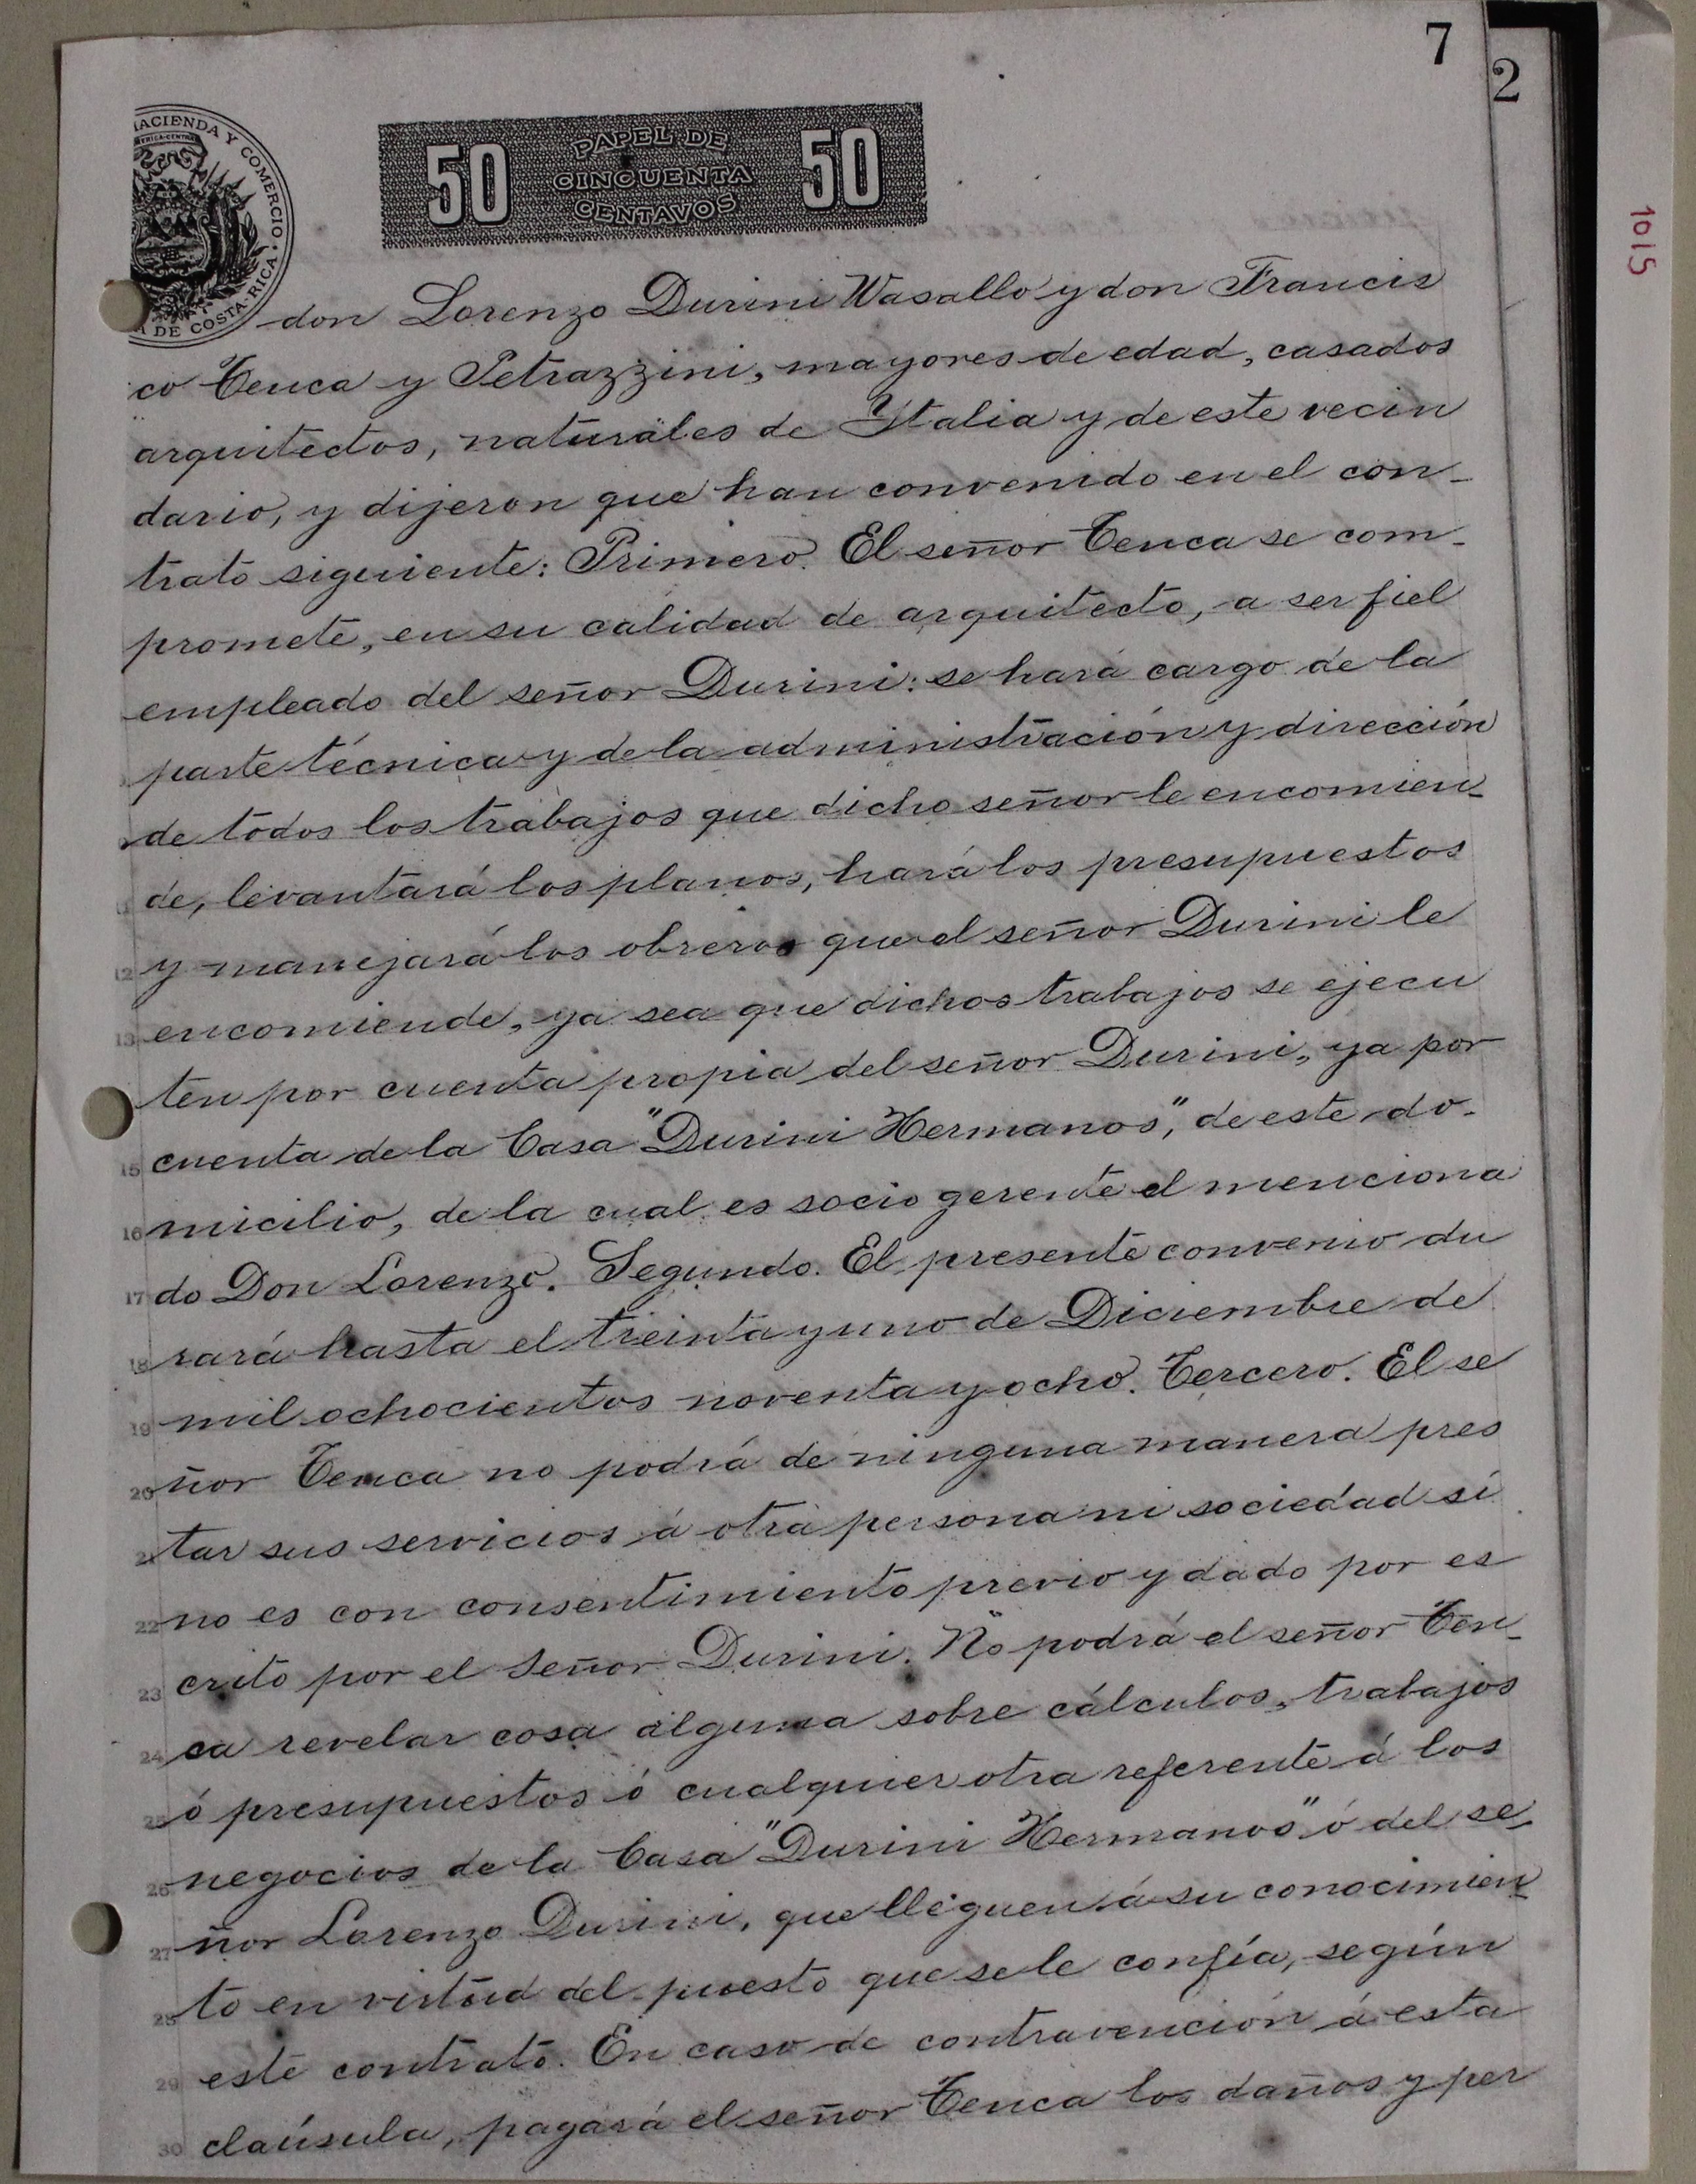 7
2
1015
HACIENDA Y COMERCIO.
AMERICA CENTRAL
A DE COSTA-RICA.
50 PAPEL DE 50
CINCUENTA
CENTAVOS
don Lorenzo Durini Wasallo y don Francis
co Tenca y Petrazzini, mayores de edad, casados
arquitectos, naturales de Ytalia y de este vecin
dario, y dijeron que han convenido en el con-
trato siguiente: Primero. El señor Tenca se com-
promete, en su calidad de arquitecto, a ser fiel
empleado del señor Durini: se hará cargo de la
parte técnica y de la administración y dirección
de todos los trabajos que dicho señor le encomien-
de, levantará los planos, hará los presupuestos
12 y manejará los obreros que el señor Durini le
13 encomiende, ya sea que dichos trabajos se ejecu
ten por cuenta propia del señor Durini, ya por
15 cuenta de la Casa "Durini Hermanos", de este do-
16 micilio, de la cual es socio gerente el menciona
17 do Don Lorenzo. Segundo. El presente convenio du
18 rará hasta el treinta y uno de Diciembre de
19 mil ochocientos noventa y ocho. Tercero. El se
20 ñor Tenca no podrá de ninguna manera pres
21 tar sus servicios á otra persona ni sociedad si
22 no es con consentimiento previo y dado por es
23 crito por el señor Durini. No podrá el señor Ten-
24 ca revelar cosa alguna sobre cálculos, trabajos
25 ó presupuestos ó cualquier otra referente á los
26 negocios de la Casa "Durini Hermanos" ó del se-
27 ñor Lorenzo Durini, que lleguen á su conocimien-
28 to en virtud del puesto que se le confía, según
29 este contrato. En caso de contravención á esta
30 claúsula, pagará el señor Tenca los daños y per